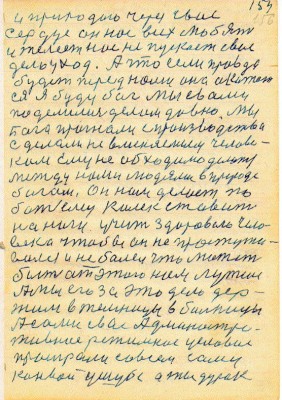 154
156
и природою через свое
сердце он нас всех любят
и телесное не пускает свое
дело уход. А что если правда
будет перед нами она окажет
ся я буду бог мы с вами
поделимся делом давно. Мы
бога прогнали с производства
сделали не вменяемым челове-
ком ему необходимо делают
между нами людями в природе
богам. Он нам делает по
божему калек ставит
на ноги учит здоровова чело-
века чтобы он не простужа-
лся и не болел что может
быть от этого нам лучшее
А мы его за это дело дер-
жим в темницы в больницы
А сами с вас Администра-
тивное режимное условие
проиграли совсем саму
а ты дурак